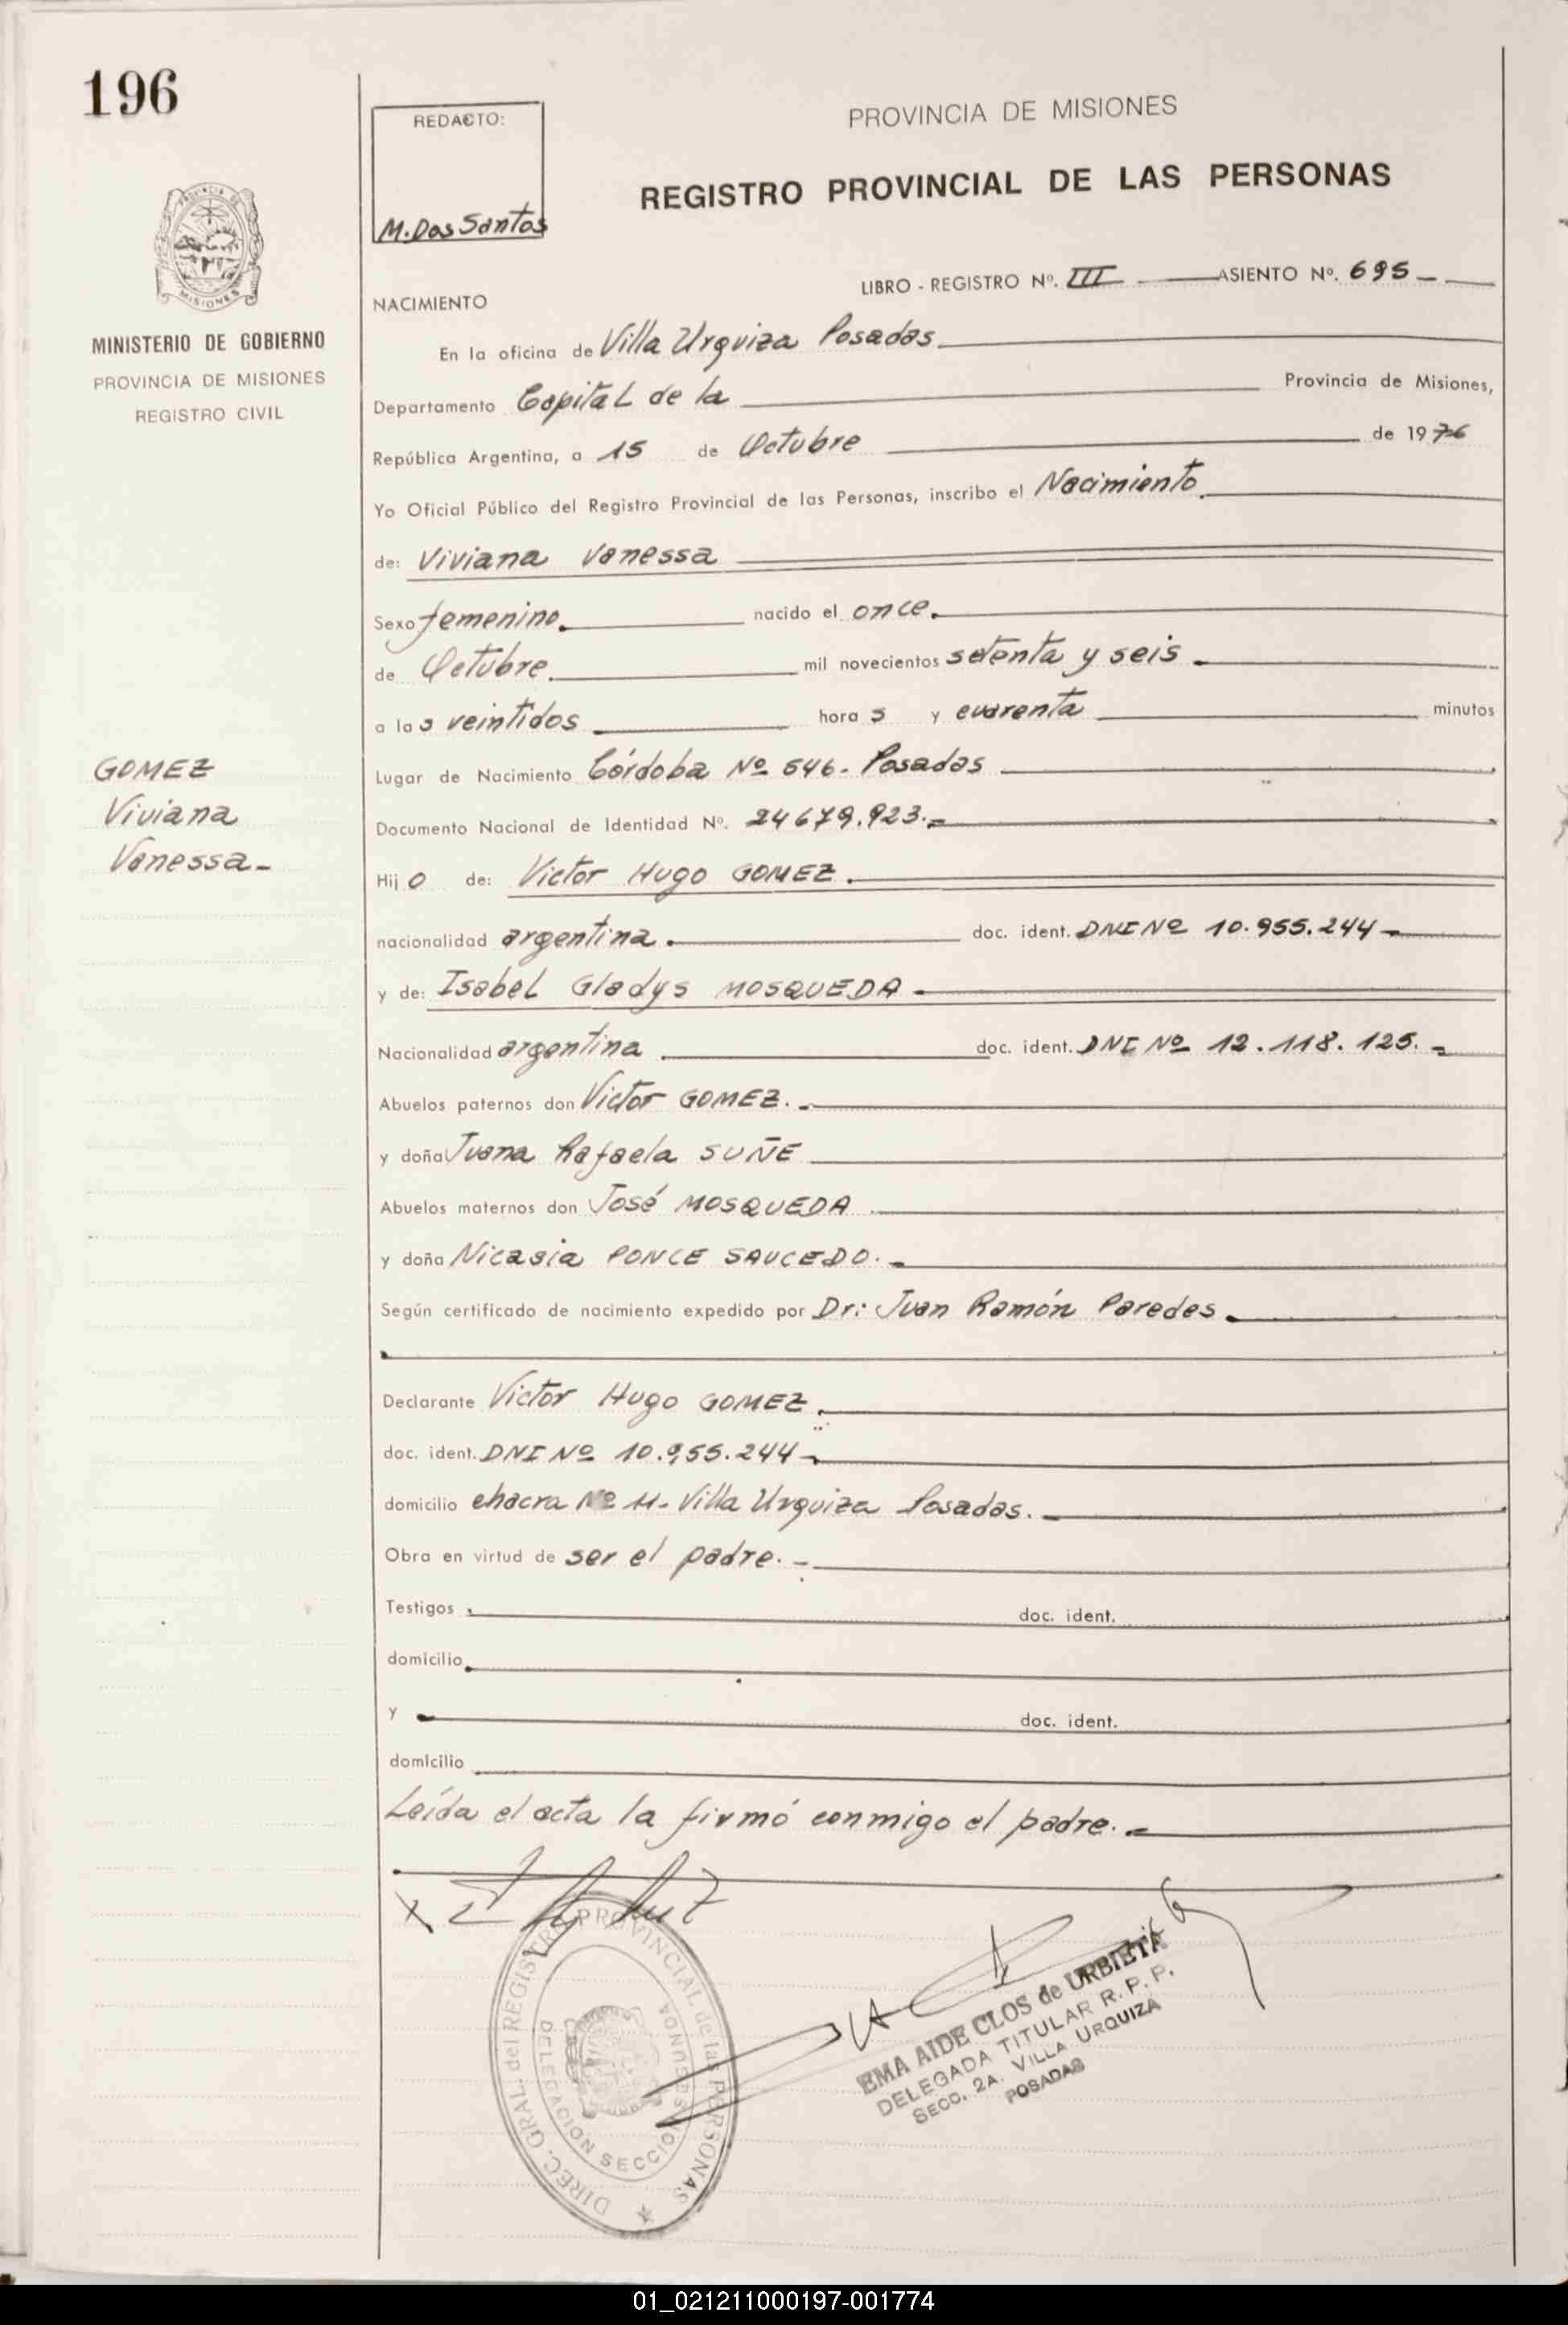 196
REDACTO:
M. Dos Santos
PROVINCIA DE MISIONES
REGISTRO PROVINCIAL DE LAS PERSONAS
MISIONES
MINISTERIO DE GOBIERNO
PROVINCIA DE MISIONES
REGISTRO CIVIL
LIBRO - REGISTRO Nº. III ASIENTO Nº. 695
NACIMIENTO
En la oficina de Villa Urquiza Posadas
Departamento Capital de la Provincia de Misiones,
República Argentina, a 15 de Octubre de 1976
Yo Oficial Público del Registro Provincial de las Personas, inscribo el Nacimiento
de: Viviana Vanessa
Sexo femenino. nacido el once.
de Octubre. mil novecientos setenta y seis
a las veintidos horas y cuarenta minutos
Lugar de Nacimiento Córdoba Nº 546. Posadas
Documento Nacional de Identidad Nº. 24679.923.
GOMEZ
Viviana
Vanessa-
Hijo de: Victor Hugo GOMEZ.
nacionalidad argentina. doc. ident. DNI Nº 10.955.244
y de: Isabel Gladys MOSQUEDA
Nacionalidad argentina doc. ident. DNI Nº 12.118.125.
Abuelos paternos don Victor GOMEZ.
y doña Juana Rafaela SUÑE
Abuelos maternos don José MOSQUEDA
y doña Nicasia PONCE SAUCEDO.
Según certificado de nacimiento expedido por Dr: Juan Ramón Paredes
Declarante Victor Hugo GOMEZ.
doc. ident. DNI Nº 10.955.244
domicilio chacra Nº 11. Villa Urquiza Posadas.
Obra en virtud de ser el padre.
Testigos doc. ident.
domicilio
y doc. ident.
domicilio
Leída el acta la firmó conmigo el padre.
DIREC. GRAL. del REGISTRO PROVINCIAL de las PERSONAS
DELEGACION SECCION SEGUNDA
EMA AIDE CLOS de URBIETA
DELEGADA TITULAR R. P. P.
SECC. 2A. VILLA URQUIZA
POSADAS
01_021211000197-001774